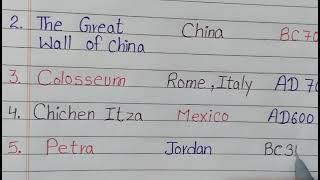 2. The Great China BC 70
Wall of China
3. Colosseum Rome, Italy AD 70
4. Chichen Itza Mexico AD600
5. Petra Jordan BC 3